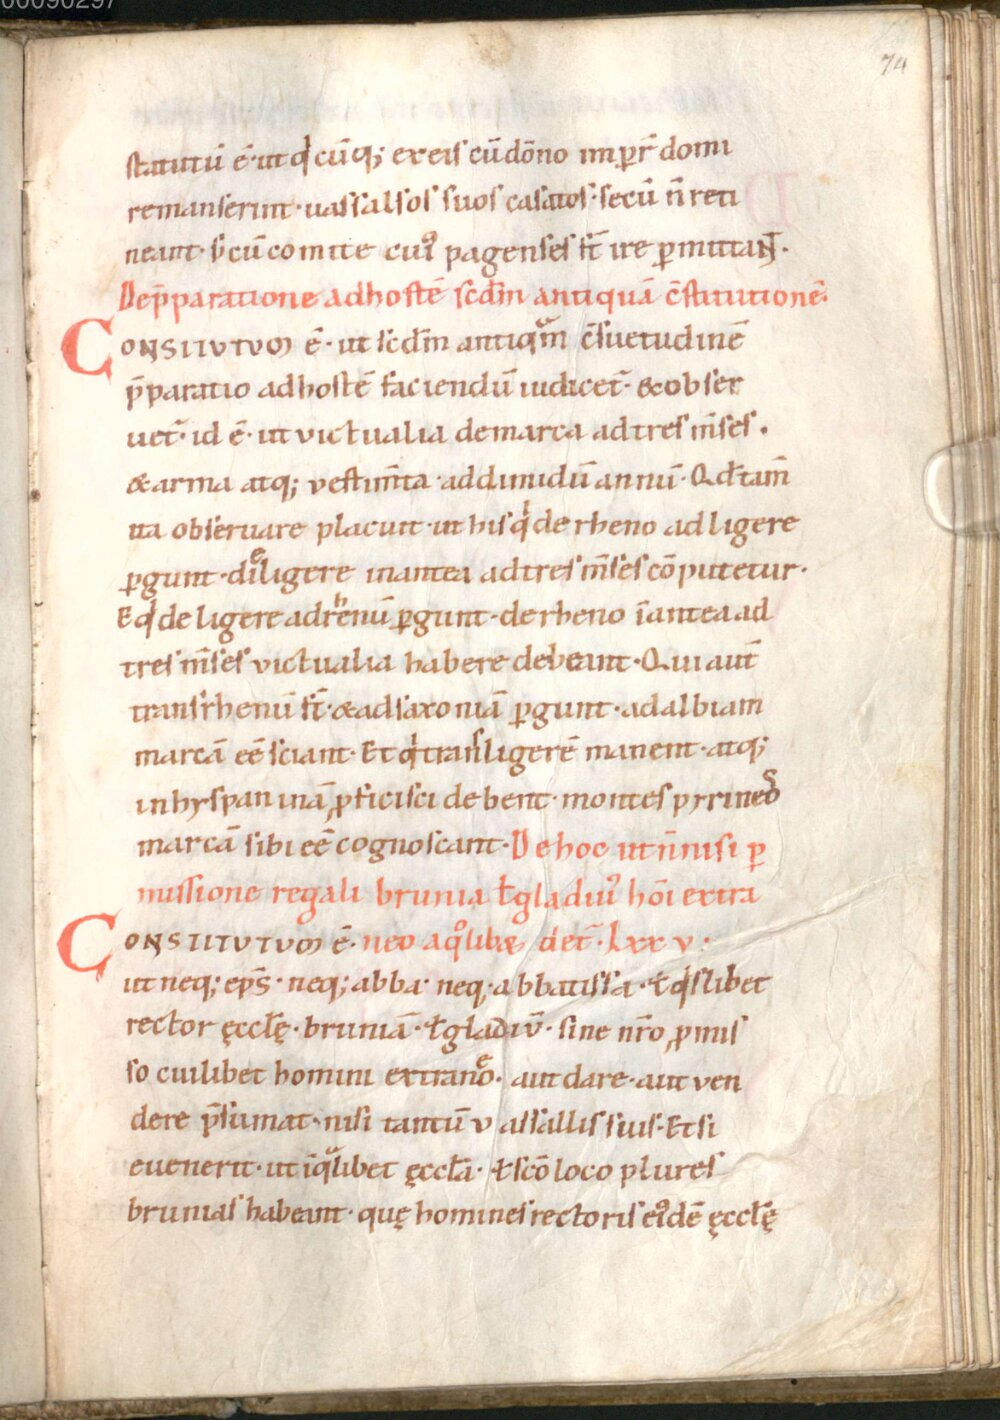 00090297
74
statutū ē· ut qͥcūq; ex eis cū dōno imꝑr̄ domi
remanserint· uassallos suos casatos· secū n̄ reti
neant· s; cū comite cuiꝰ pagenses st̄ ire ꝑmittant̄·
De p̄paratione ad hostē scd̄m antiquā c̄stitutionē·
CONSTITVTVM ē· ut scd̄m antiqͣm c̄suetudinē
p̄paratio ad hostē faciendū iudicet̄· & obser
uet̄· id ē· ut victualia de marca ad tres m̄ses·
& arma atq; vestim̄ta· ad dimidiū annū· Qd̄ tam̄
ita obseruare placuit· ut his qͥ de rheno ad ligere
ꝑgunt· de ligere inantea ad tres m̄ses cōputetur·
Et qͥ de ligere ad rhenū ꝑgunt· de rheno īantea ad
tres m̄ses victualia habere debeant· Qui aut̄
trans rhenū st̄· & ad saxoniā ꝑgunt· ad albiam
marcā eē sciant· Et qͥ trans ligerē manent· atq;
in hyspaniā ꝓficisci debent· montes pyrineos
marcā sibi eē cognoscant· De hoc ut n̄ nisi ꝑ
missione regali brunia ł gladiuꝰ hōi extra
CONSTITVTVM ē· neo a qͦlibet det̄· lxxv·
ut neq; ep̄s· neq; abba· neq; abbatissa· ł qͥslibet
rector ęccl̄ę· bruniā· ł gladiū· sine nr̄o ꝓmis
so cuilibet homini extraneo· aut dare· aut ven
dere p̄sumat· nisi tantū vassallis suis· Et si
euenerit· ut ī qͣlibet ęccl̄a· ł scō loco plures
brunias habeant· quę homines rectoris eiꝰdē ęccl̄ę